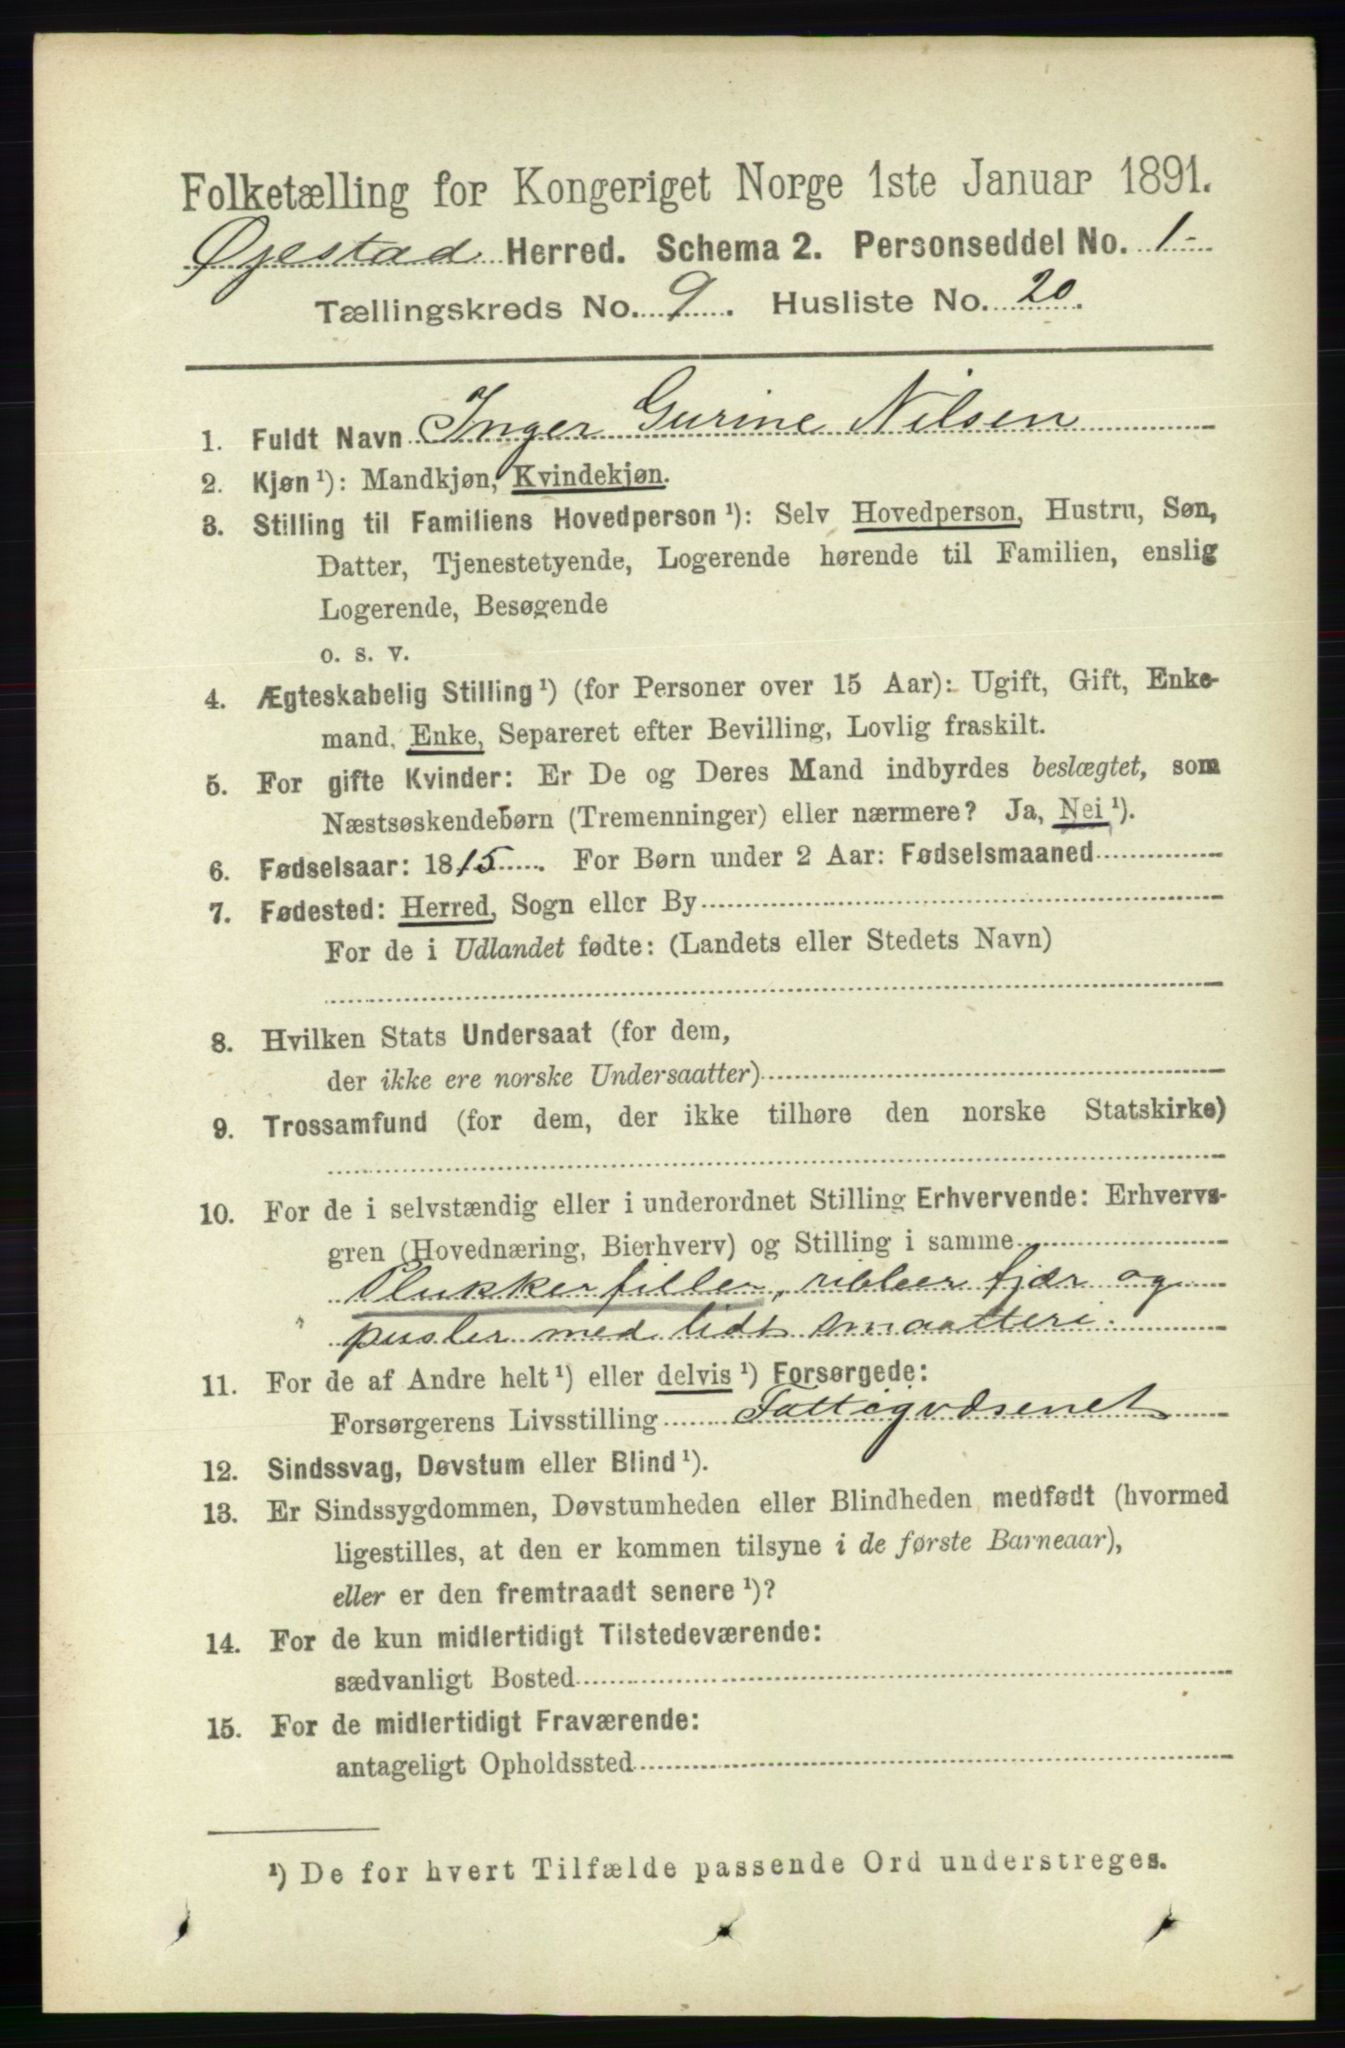 Folketælling for Kongeriget Norge 1ste Januar 1891.
Øjestad Herred. Schema 2. Personseddel No. 1-
Tællingskreds No. 9. Husliste No. 20.
1. Fuldt Navn Inger Gurine Nilsen
2. Kjøn ¹): Mandkjøn, Kvindekjøn.
3. Stilling til Familiens Hovedperson ¹): Selv Hovedperson, Hustru, Søn,
Datter, Tjenestetyende, Logerende hørende til Familien, enslig
Logerende, Besøgende
o. s. v.
4. Ægteskabelig Stilling ¹) (for Personer over 15 Aar): Ugift, Gift, Enke-
mand, Enke, Separeret efter Bevilling, Lovlig fraskilt.
5. For gifte Kvinder: Er De og Deres Mand indbyrdes beslægtet, som
Næstsøskendebørn (Tremenninger) eller nærmere? Ja, Nei ¹).
6. Fødselsaar: 1815. For Børn under 2 Aar: Fødselsmaaned
7. Fødested: Herred, Sogn eller By
For de i Udlandet fødte: (Landets eller Stedets Navn)
8. Hvilken Stats Undersaat (for dem,
der ikke ere norske Undersaatter)
9. Trossamfund (for dem, der ikke tilhøre den norske Statskirke)
10. For de i selvstændig eller i underordnet Stilling Erhvervende: Erhvervs-
gren (Hovednæring, Bierhverv) og Stilling i samme
Plukker filler, ribber fjær og
pusler med lidt smaatteri.
11. For de af Andre helt ¹) eller delvis ¹) Forsørgede:
Forsørgerens Livsstilling Fattigvæsenet
12. Sindssvag, Døvstum eller Blind ¹).
13. Er Sindssygdommen, Døvstumheden eller Blindheden medfødt (hvormed
ligestilles, at den er kommen tilsyne i de første Barneaar),
eller er den fremtraadt senere ¹)?
14. For de kun midlertidigt Tilstedeværende:
sædvanligt Bosted
15. For de midlertidigt Fraværende:
antageligt Opholdssted
¹) De for hvert Tilfælde passende Ord understreges.